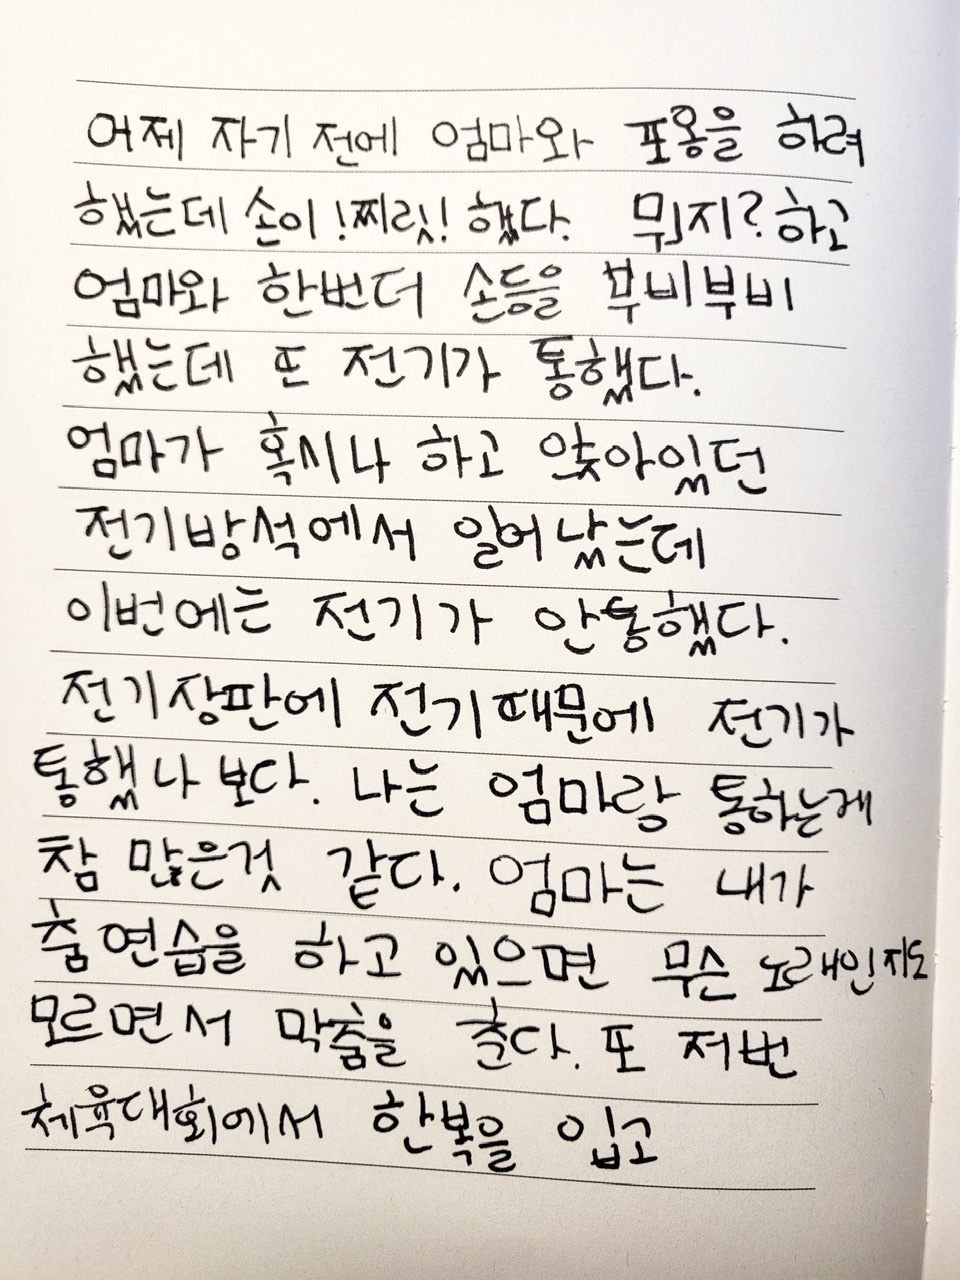 어제 자기 전에 엄마와 포옹을 하려
했는데 손이 !찌릿! 했다. 뭐지? 하고
엄마와 한번더 손등을 부비부비
했는데 또 전기가 통했다.
엄마가 혹시나 하고 앉아있던
전기방석에서 일어났는데
이번에는 전기가 안통했다.
전기장판에 전기때문에 전기가
통했나 보다. 나는 엄마랑 통하는게
참 많은것 같다. 엄마는 내가
춤연습을 하고 있으면 무슨 노래인지도
모르면서 막춤을 춘다. 또 저번
체육대회에서 한복을 입고